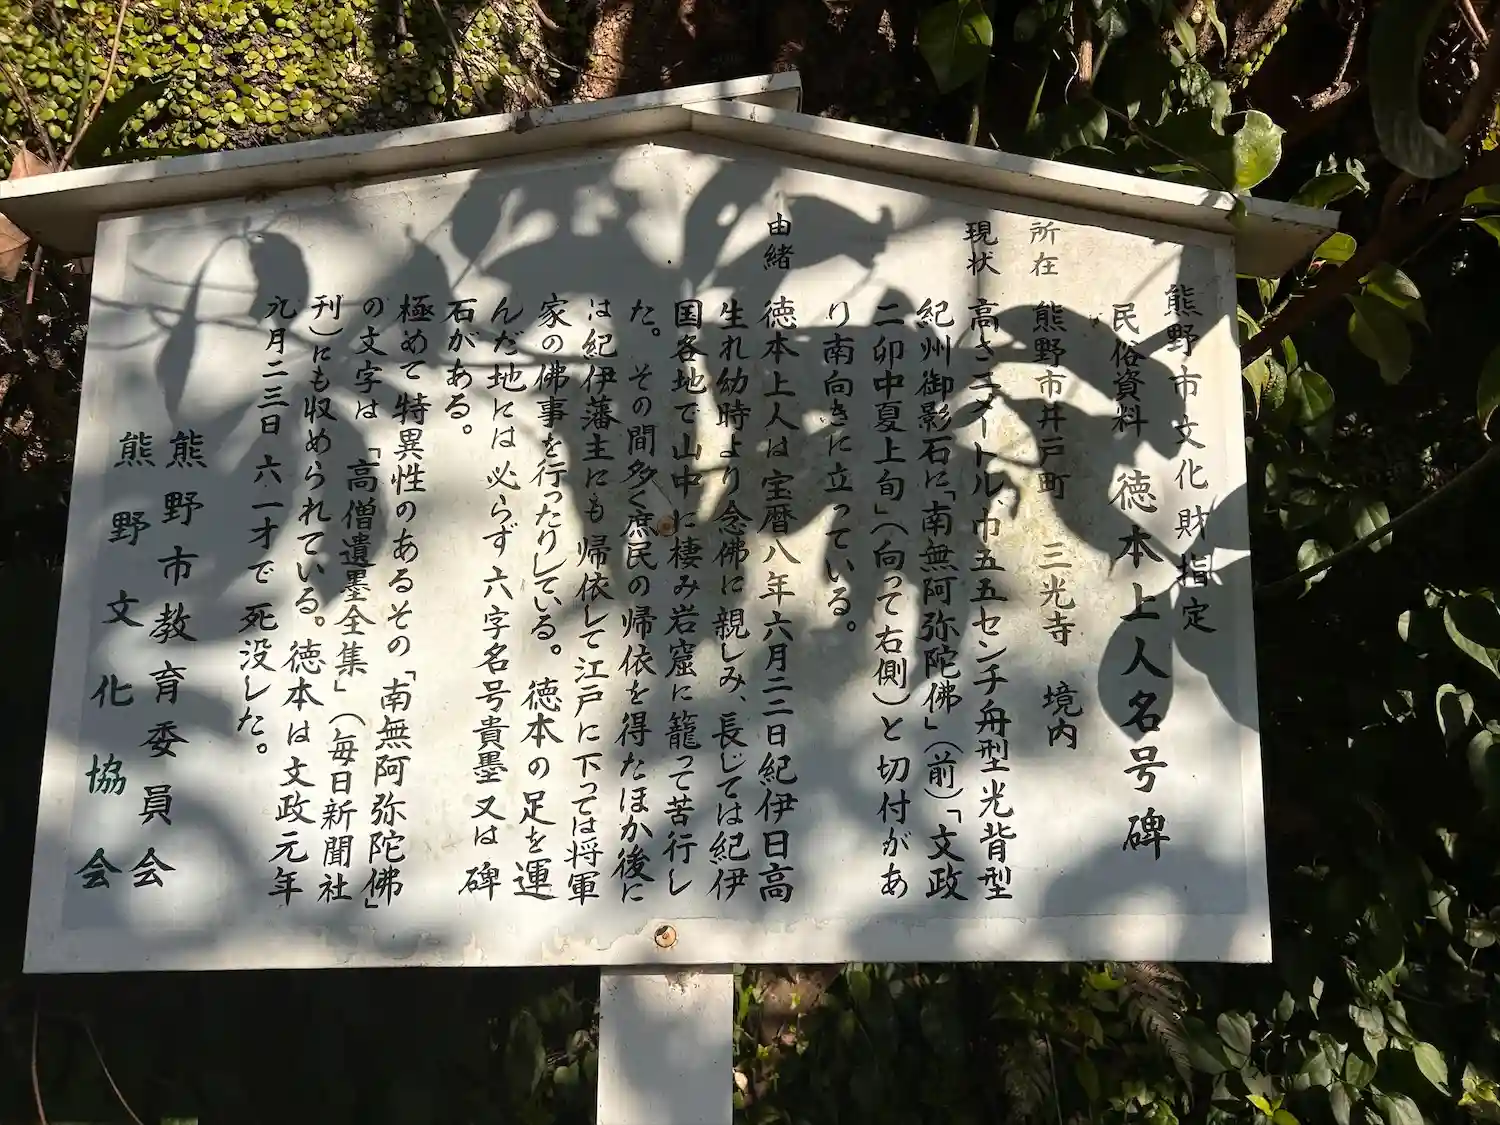 熊野市文化財指定
民俗資料 徳本上人名号碑
所在 熊野市井戸町 三光寺 境内
現状 高さ二メートル、巾五五センチ舟型光背型
紀州御影石に「南無阿弥陀佛」(前)「文政
二卯中夏上旬」(向って右側)と切付があ
り南向きに立っている。
由緒 徳本上人は宝暦八年六月二二日紀伊日高
生れ幼時より念佛に親しみ、長じては紀伊
国各地で山中に棲み岩窟に籠って苦行し
た。その間多く庶民の帰依を得たほか後に
は紀伊藩主にも帰依して江戸に下っては将軍
家の佛事を行ったりしている。徳本の足を運
んだ地には必らず六字名号貴墨又は碑
石がある。
極めて特異性のあるその「南無阿弥陀佛」
の文字は「高僧遺墨全集」(毎日新聞社
刊)にも収められている。徳本は文政元年
九月二三日六一才で死没した。
熊野市教育委員会
熊野文化協会